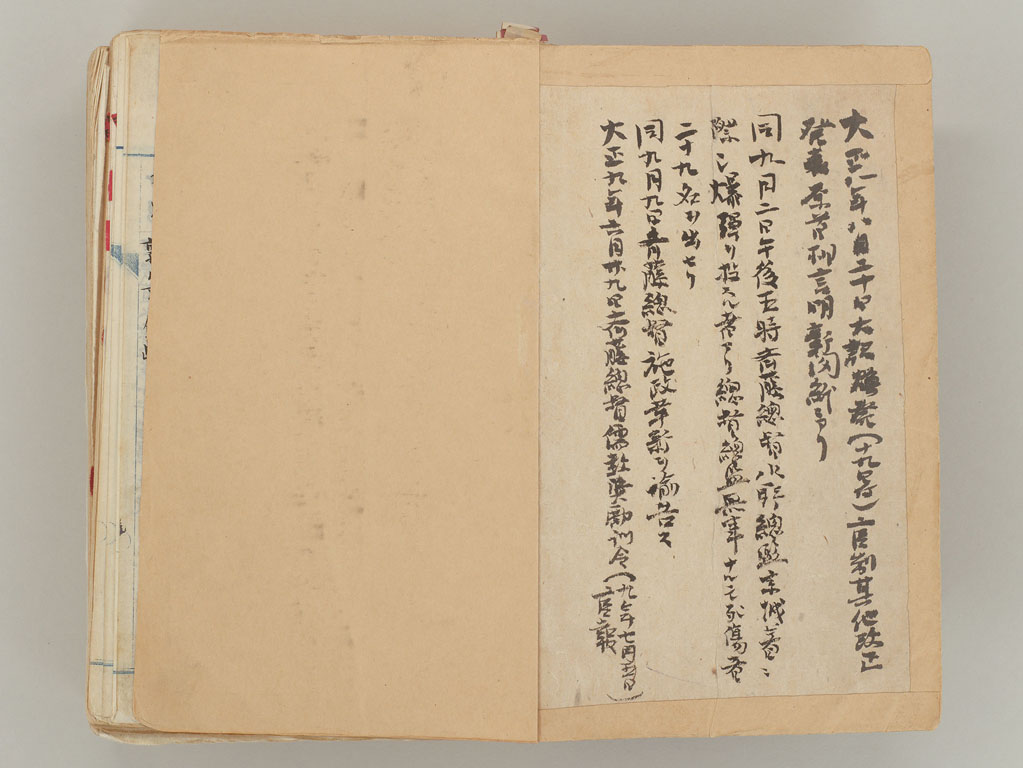 大正八年八月二十日大詔煥発(十九日付)官制其他改正
発表原首相言明新聞ニアリ
同九月二日午後五時斎藤総督水野総監京城ニ着ノ
際ニ爆弾ヲ投スル者アリ総督総監無事ナルモ死傷者
二十九名ヲ出セリ
同九月九日斎藤総督施政革新ヲ諭告ス
大正九年六月廿九日斎藤総督儒教奨励訓令(九年七月五日
官報)